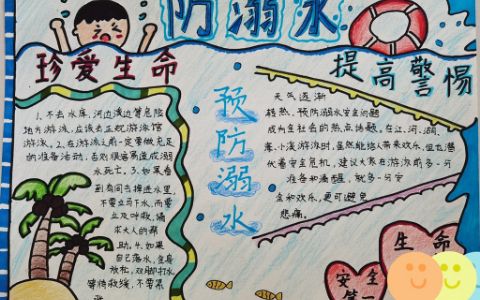 防溺水
珍爱生命
提高警惕
预防溺水
1、不去水库，河边浅边等危险
地方游泳，应该去正规游泳馆
游泳。2、在游泳前一定要做充足
的准备活动，否则很容易造成溺
水死亡。3、如果看
到有同去掉进水里，
不要立马下水，而要
立及呼救，请
求大人的帮
助。4、如果
自己落水，全身
放松，双脚打水
等待救援，不要
天气逐渐
转热，预防溺水安全问题
成为全社会的热点话题，在江、河、湖、
小溪游泳时，虽然能给人带来欢乐，但也潜
伏着安全危机，建议大家在游泳前多一分
准备和清醒，就多一分安
全和欢乐，更可避免
悲痛。
生命
安全